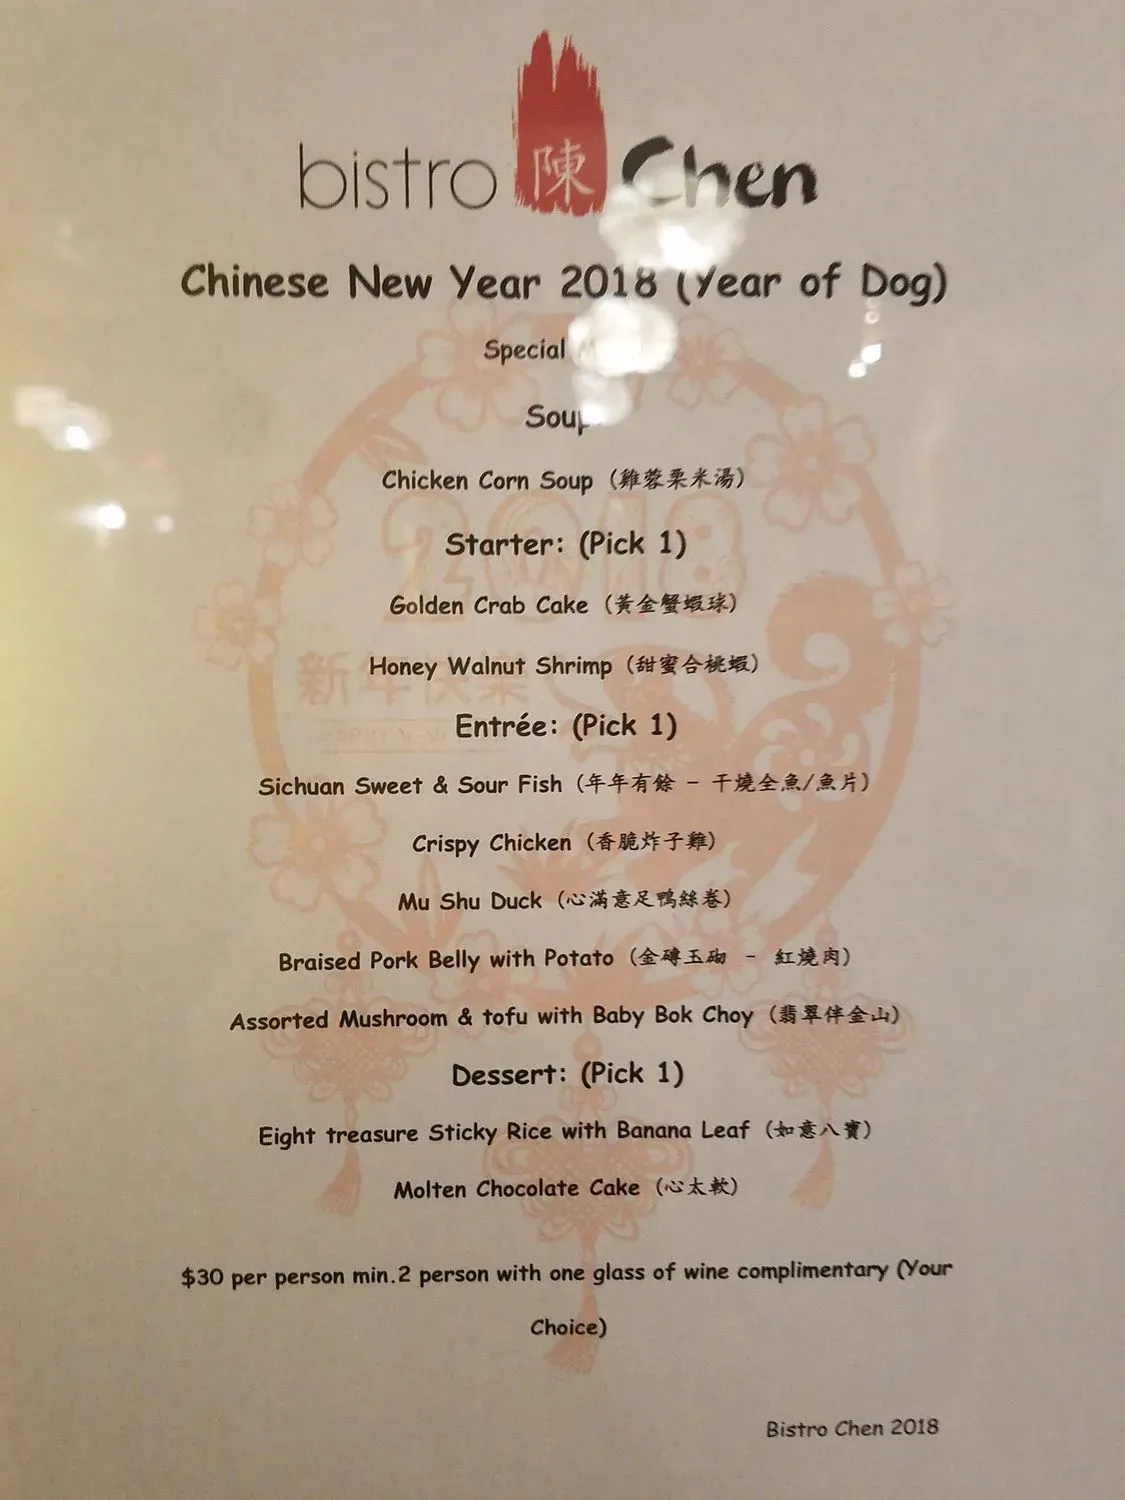 bistro 陳 Chen
Chinese New Year 2018 (Year of Dog)
Special
Chicken Corn Soup (雞蓉栗米湯)
2018
Starter: (Pick 1)
Golden Crab Cake (黃金蟹蝦球)
Honey Walnut Shrimp (甜蜜合桃蝦)
新年快樂
Entrée: (Pick 1)
Sichuan Sweet & Sour Fish (年年有餘 - 干燒全魚/魚片)
Crispy Chicken (香脆炸子雞)
Mu Shu Duck (心滿意足鴨絲卷)
Braised Pork Belly with Potato (金磚玉砌 - 紅燒肉)
Assorted Mushroom & tofu with Baby Bok Choy (翡翠伴金山)
Dessert: (Pick 1)
Eight treasure Sticky Rice with Banana Leaf (如意八寶)
Molten Chocolate Cake (心太軟)
$30 per person min.2 person with one glass of wine complimentary (Your
Choice)
Bistro Chen 2018